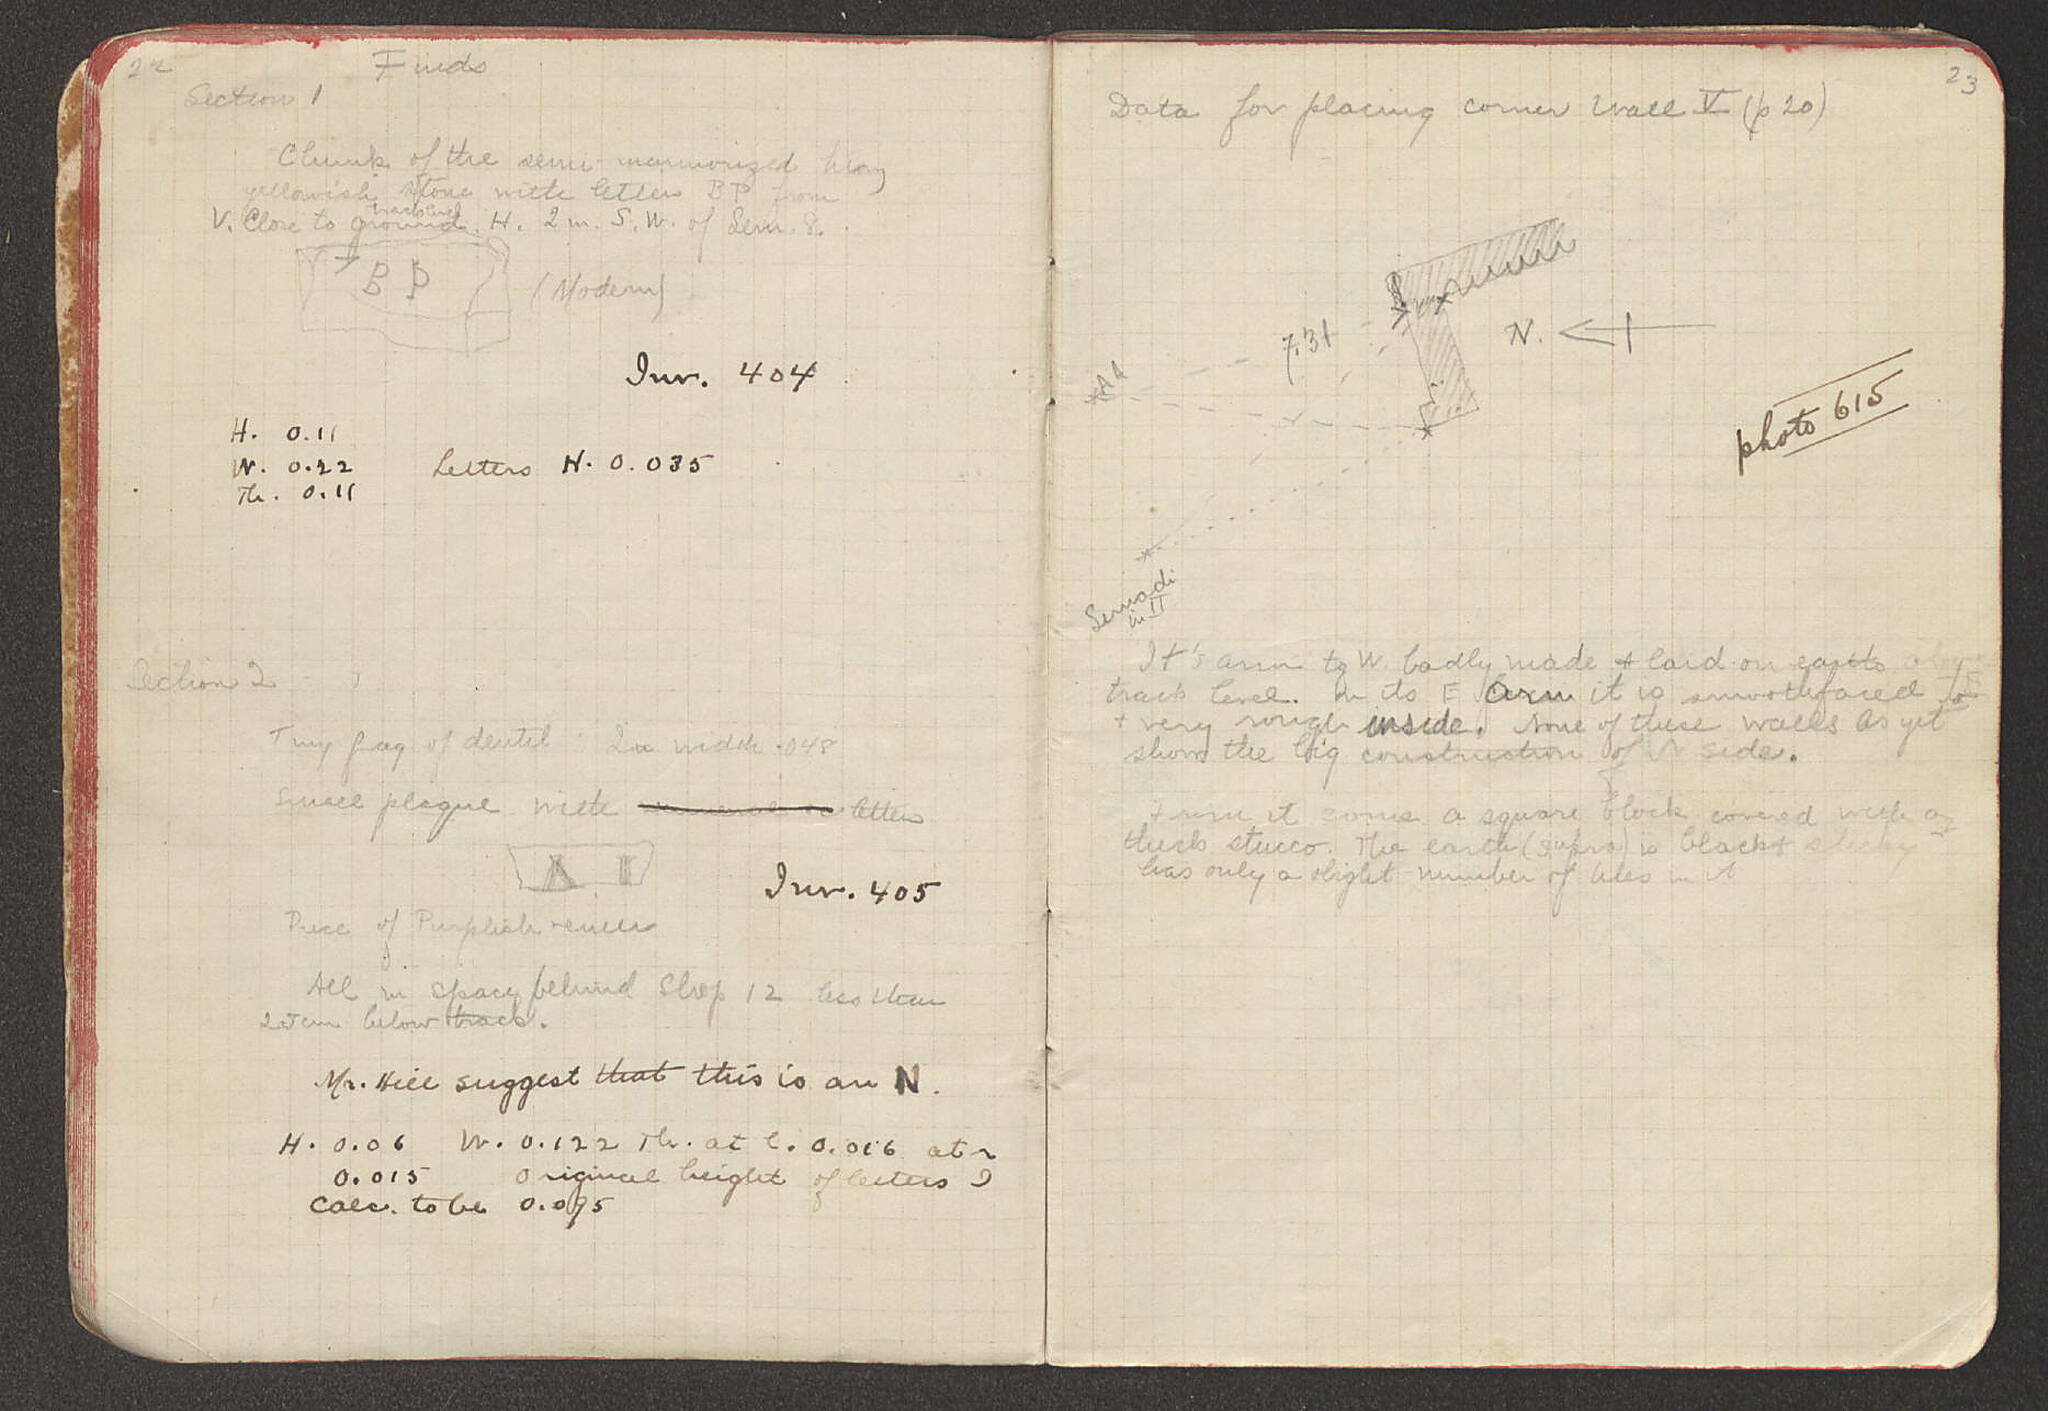 22
Finds
Section 1
Chunk of the semi-marmorized heavy
yellowish stone with letters BP from
track level
V. Close to ground. H. 2 m. S.W. of Sem. 8.
B P
(Modern)
Inv. 404
H. 0.11
W. 0.22 Letters H. 0.035
Th. 0.11
Section 2
Tiny frag of dentil width .048
Small plaque with letters
Inv. 405
Piece of Purplish
All in space behind Shop 12 less than
25 cm below track.
Mr. Hill suggest that this is an N.
H. 0.06 W. 0.122 Th. at l. 0.016 at r
0.015 Original height of letters I
calc. to be 0.095
23
Data for placing corner Wall V (p 20)
7.31
N.
photo 615
Semadi
in II
It's arm to W. badly made + laid on earth
track level. In its E arm it is smoothfaced to
+ very rough inside. None of these walls as yet
show the big construction of W side.
From it comes a square block covered with a
thick stucco. The earth (supra) is black + sticky
has only a slight number of tiles in it